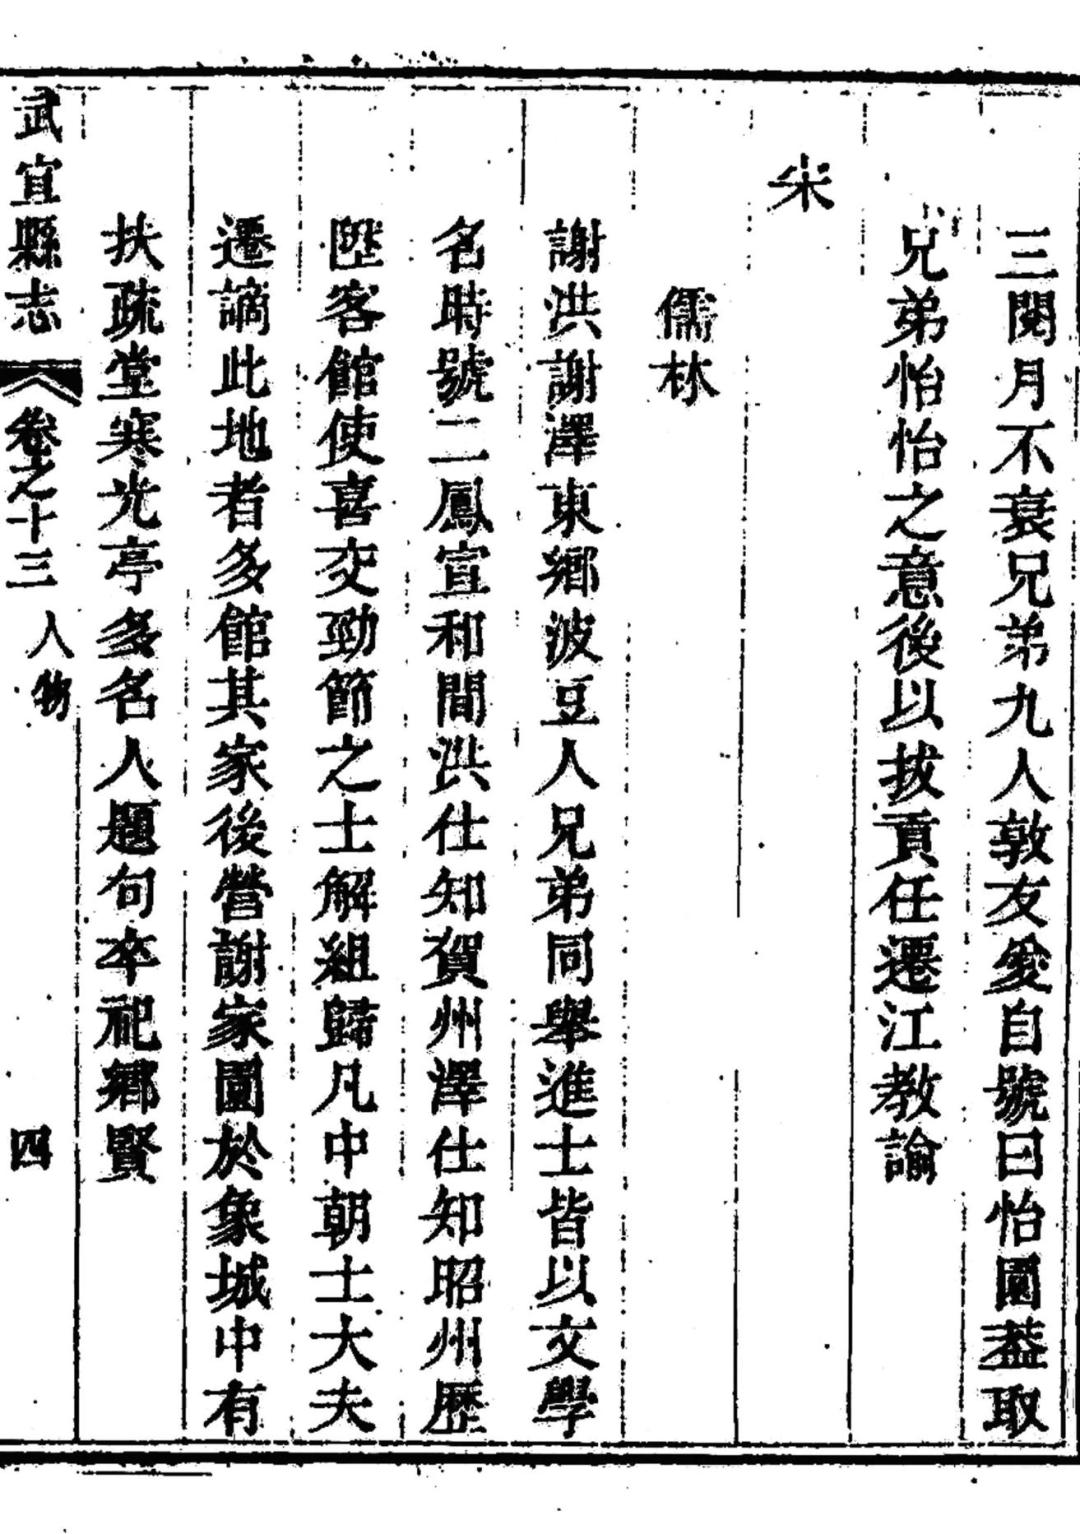 三閱月不衰兄弟九人敦友愛自號曰怡園葢取
兄弟怡怡之意後以拔貢任遷江教諭
宋
儒林
謝洪謝澤東鄉波豆人兄弟同舉進士皆以文學
名時號二鳳宣和間洪仕知賀州澤仕知昭州歷
陞客館使喜交勁節之士解組歸凡中朝士大夫
遷謫此地者多館其家後營謝家園於象城中有
扶疏堂寒光亭多名人題句卒祀鄉賢
武宣縣志 卷之十三 人物 四